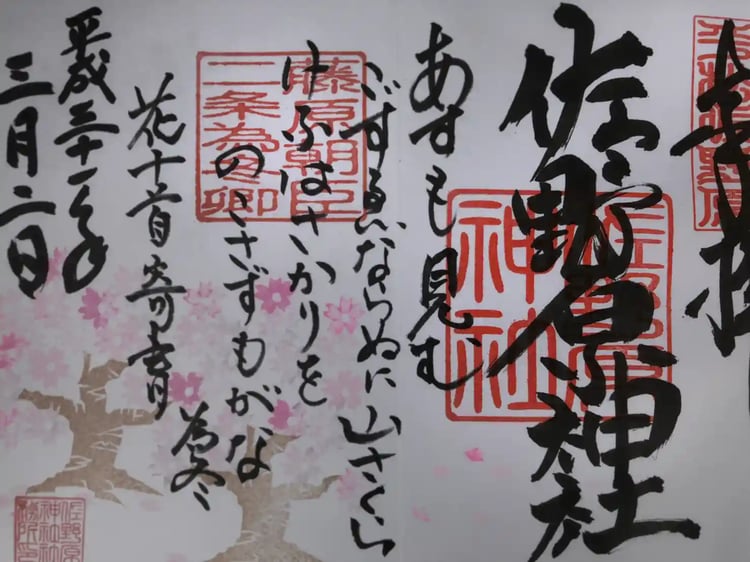 奉拝
佐野原神社
佐野原
神社
あすも見む
こずゑならぬに山さくら
けふはさかりを
のこさずもがな
藤原朝臣
二条為冬卿
花十首寄書 為冬
平成三十一年
三月二日
佐野原
神社社
務所印